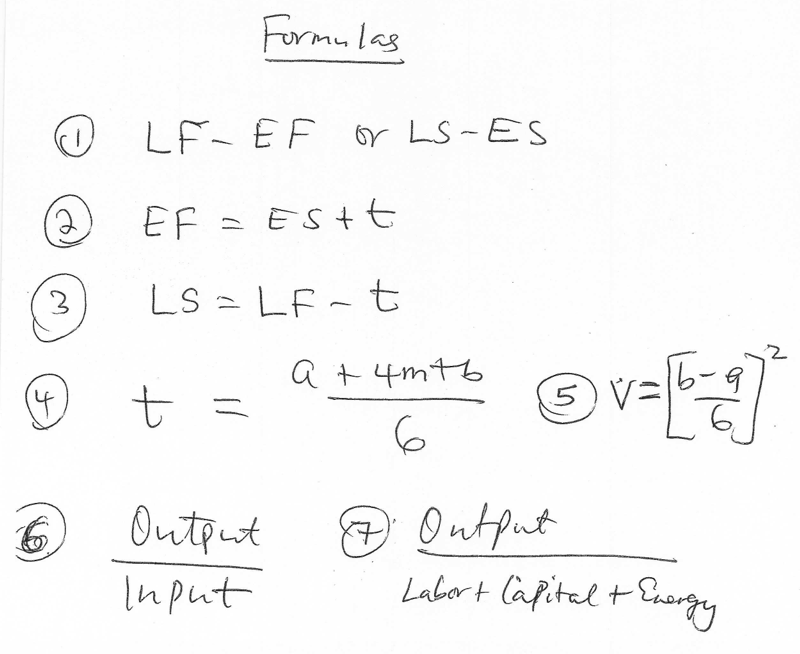 Formulas
① LF - EF or LS - ES
② EF = ES + t
③ LS = LF - t
④ t = (a + 4m + b) / 6 ⑤ V = [(b - a) / 6]²
⑥ Output / Input ⑦ Output / Labor + Capital + Energy